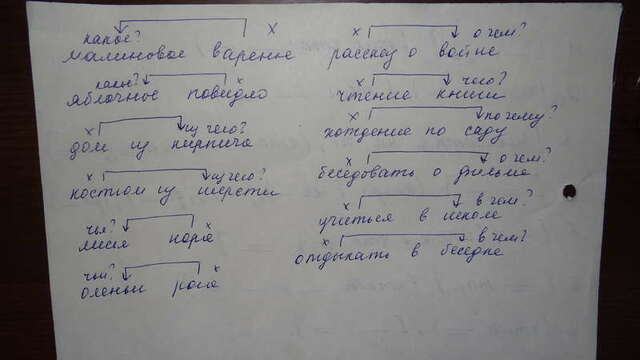 какое?
малиновое варенье
какое?
яблочное повидло
из чего?
дом из кирпича
из чего?
костюм из шерсти
чья?
лисья нора
чьи?
оленьи рога
о чем?
рассказ о войне
чего?
чтение книги
по чему?
хождение по саду
о чем?
беседовать о фильме
в чем?
учиться в школе
в чем?
отдыхать в беседке